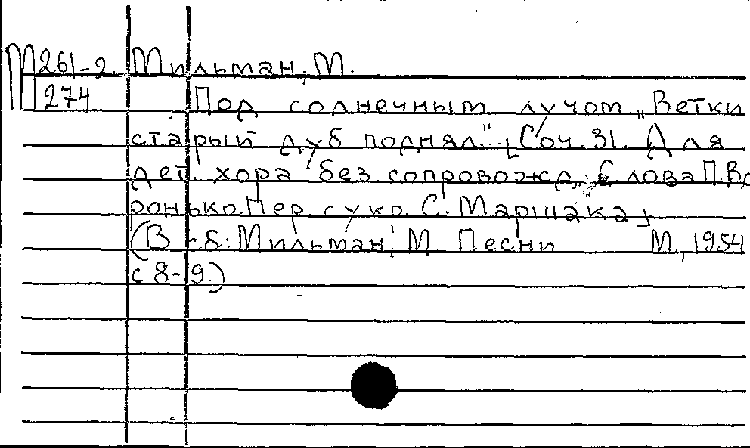 М261-2 Мильман, М.
274 Под солнечным лучом „Ветки
старый дуб поднял." [Соч. 31. Для
дет. хора без сопровожд. Слова П. Во
ронько. Пер. с укр. С. Маршака]
(В сб.: Мильман, М. Песни М., 1954
с 8-9.)